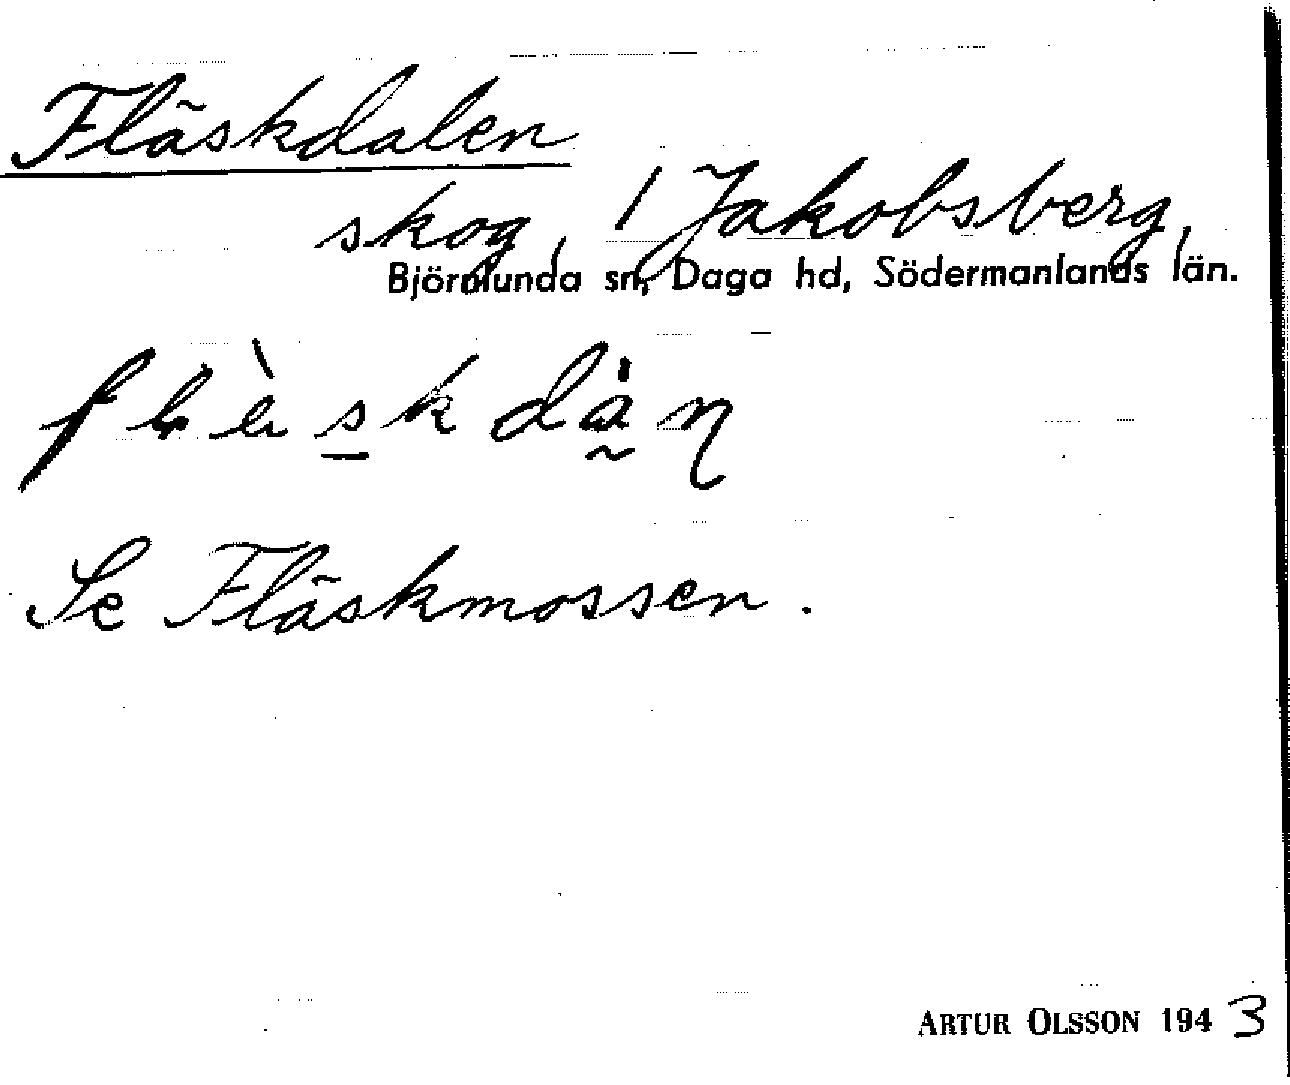 Fläskdalen
skog, 1 Jakobsberg,
Björnlunda sn, Daga hd, Södermanlands län.
Se Fläskmossen.
ARTUR OLSSON 1943